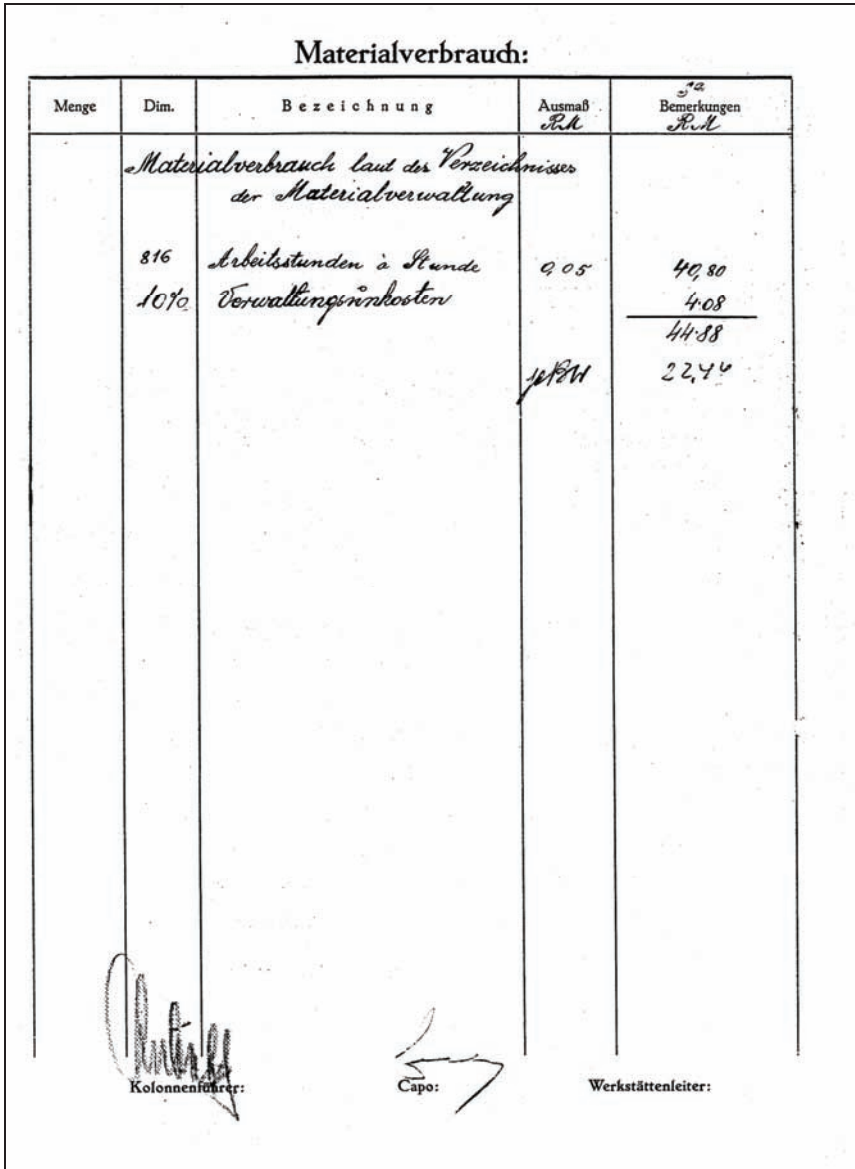 Materialverbrauch:
Menge Dim. Bezeichnung Ausmaß RM Bemerkungen RM
Materialverbrauch laut des Verzeichnisses
der Materialverwaltung
816 Arbeitsstunden à Stunde 0,05 40,80
10% Verwaltungsunkosten 4.08
44.88
Kolonnenführer: Capo: Werkstättenleiter: